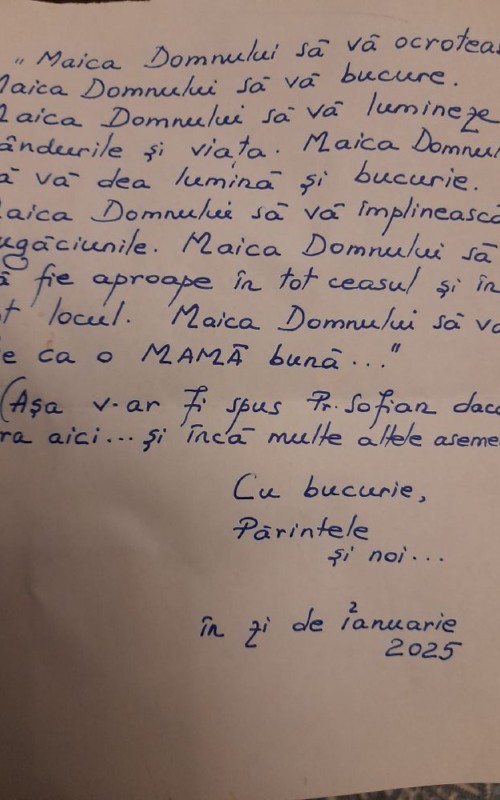 „Maica Domnului să vă ocroteas
Maica Domnului să vă bucure.
Maica Domnului să vă lumineze
ândurile și viața. Maica Domnul
ă vă dea lumină și bucurie.
Maica Domnului să vă împlinească
ugăciunile. Maica Domnului să
ă fie aproape în tot ceasul și în
t locul. Maica Domnului să vă
e ca o MAMĂ bună..."
(Așa v-ar fi spus Pr. Sofian dacă
ra aici... și încă multe altele aseme
Cu bucurie,
Părintele
și noi...
în zi de 2 ianuarie
2025